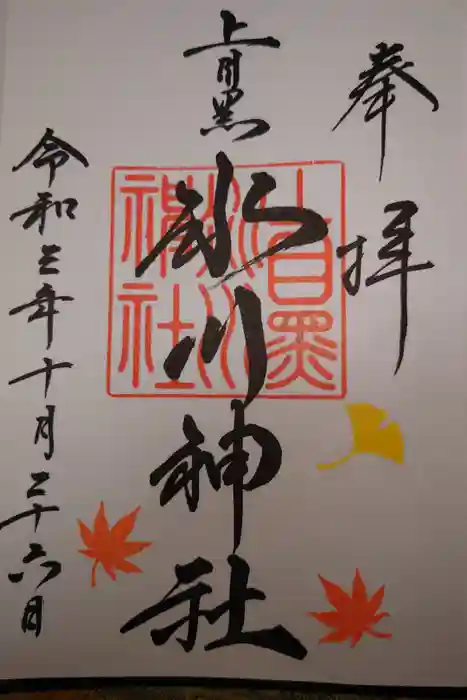 奉拝
上目黒
氷川神社
上目黒
氷川
神社
令和三年十月二十六日